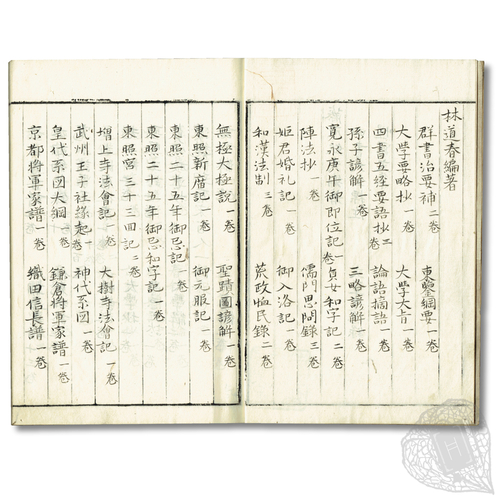 林道春編著
群書治要補 二巻 東鑑綱要 一巻
大学要略抄 一巻 大学大旨 一巻
四書五經要語抄 三 論語摘語 一巻
孫子諺解 一巻 三略諺解 一巻
寛永庚午御即位記 一巻 貞女和字記 二巻
陣法抄 一巻 儒門思問録 三巻
姫君婚礼記 一巻 御入洛記 一巻
和漢法制 三巻 荒政恤民録 二巻
無極大極説 一巻 聖蹟圖諺解 一巻
東照新廟記 一巻 御元服記 一巻
東照二十五年御忌記 一巻
東照二十五年御忌和字記 一巻
東照宮三十三回記 二巻
増上寺法會記 一巻 大樹寺法會記 一巻
武州王子社縁起 一巻 神代系圖 一巻
皇代系圖大綱 一巻 鎌倉将軍家譜 一巻
京都将軍家譜 一巻 織田信長譜 一巻